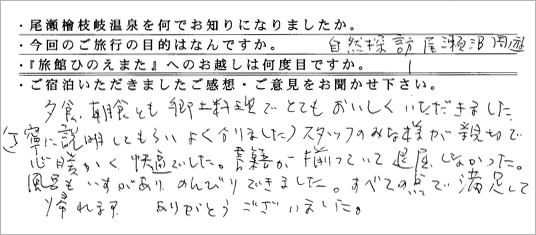 ・尾瀬檜枝岐温泉を何でお知りになりましたか。
・今回のご旅行の目的はなんですか。 自然探訪 尾瀬沼周遊
・『旅館ひのえまた』へのお越しは何度目ですか。 1
・ご宿泊いただきましたご感想・ご意見をお聞かせ下さい。
夕食、朝食とも郷土料理でとてもおいしくいただきました。
(丁寧に説明してもらいよく分りました)スタッフのみな様が親切で
心暖かく快適でした。書籍が揃っていて退屈しなかった。
風呂もいすがありのんびりできました。すべての点で満足して
帰れます ありがとうございました。